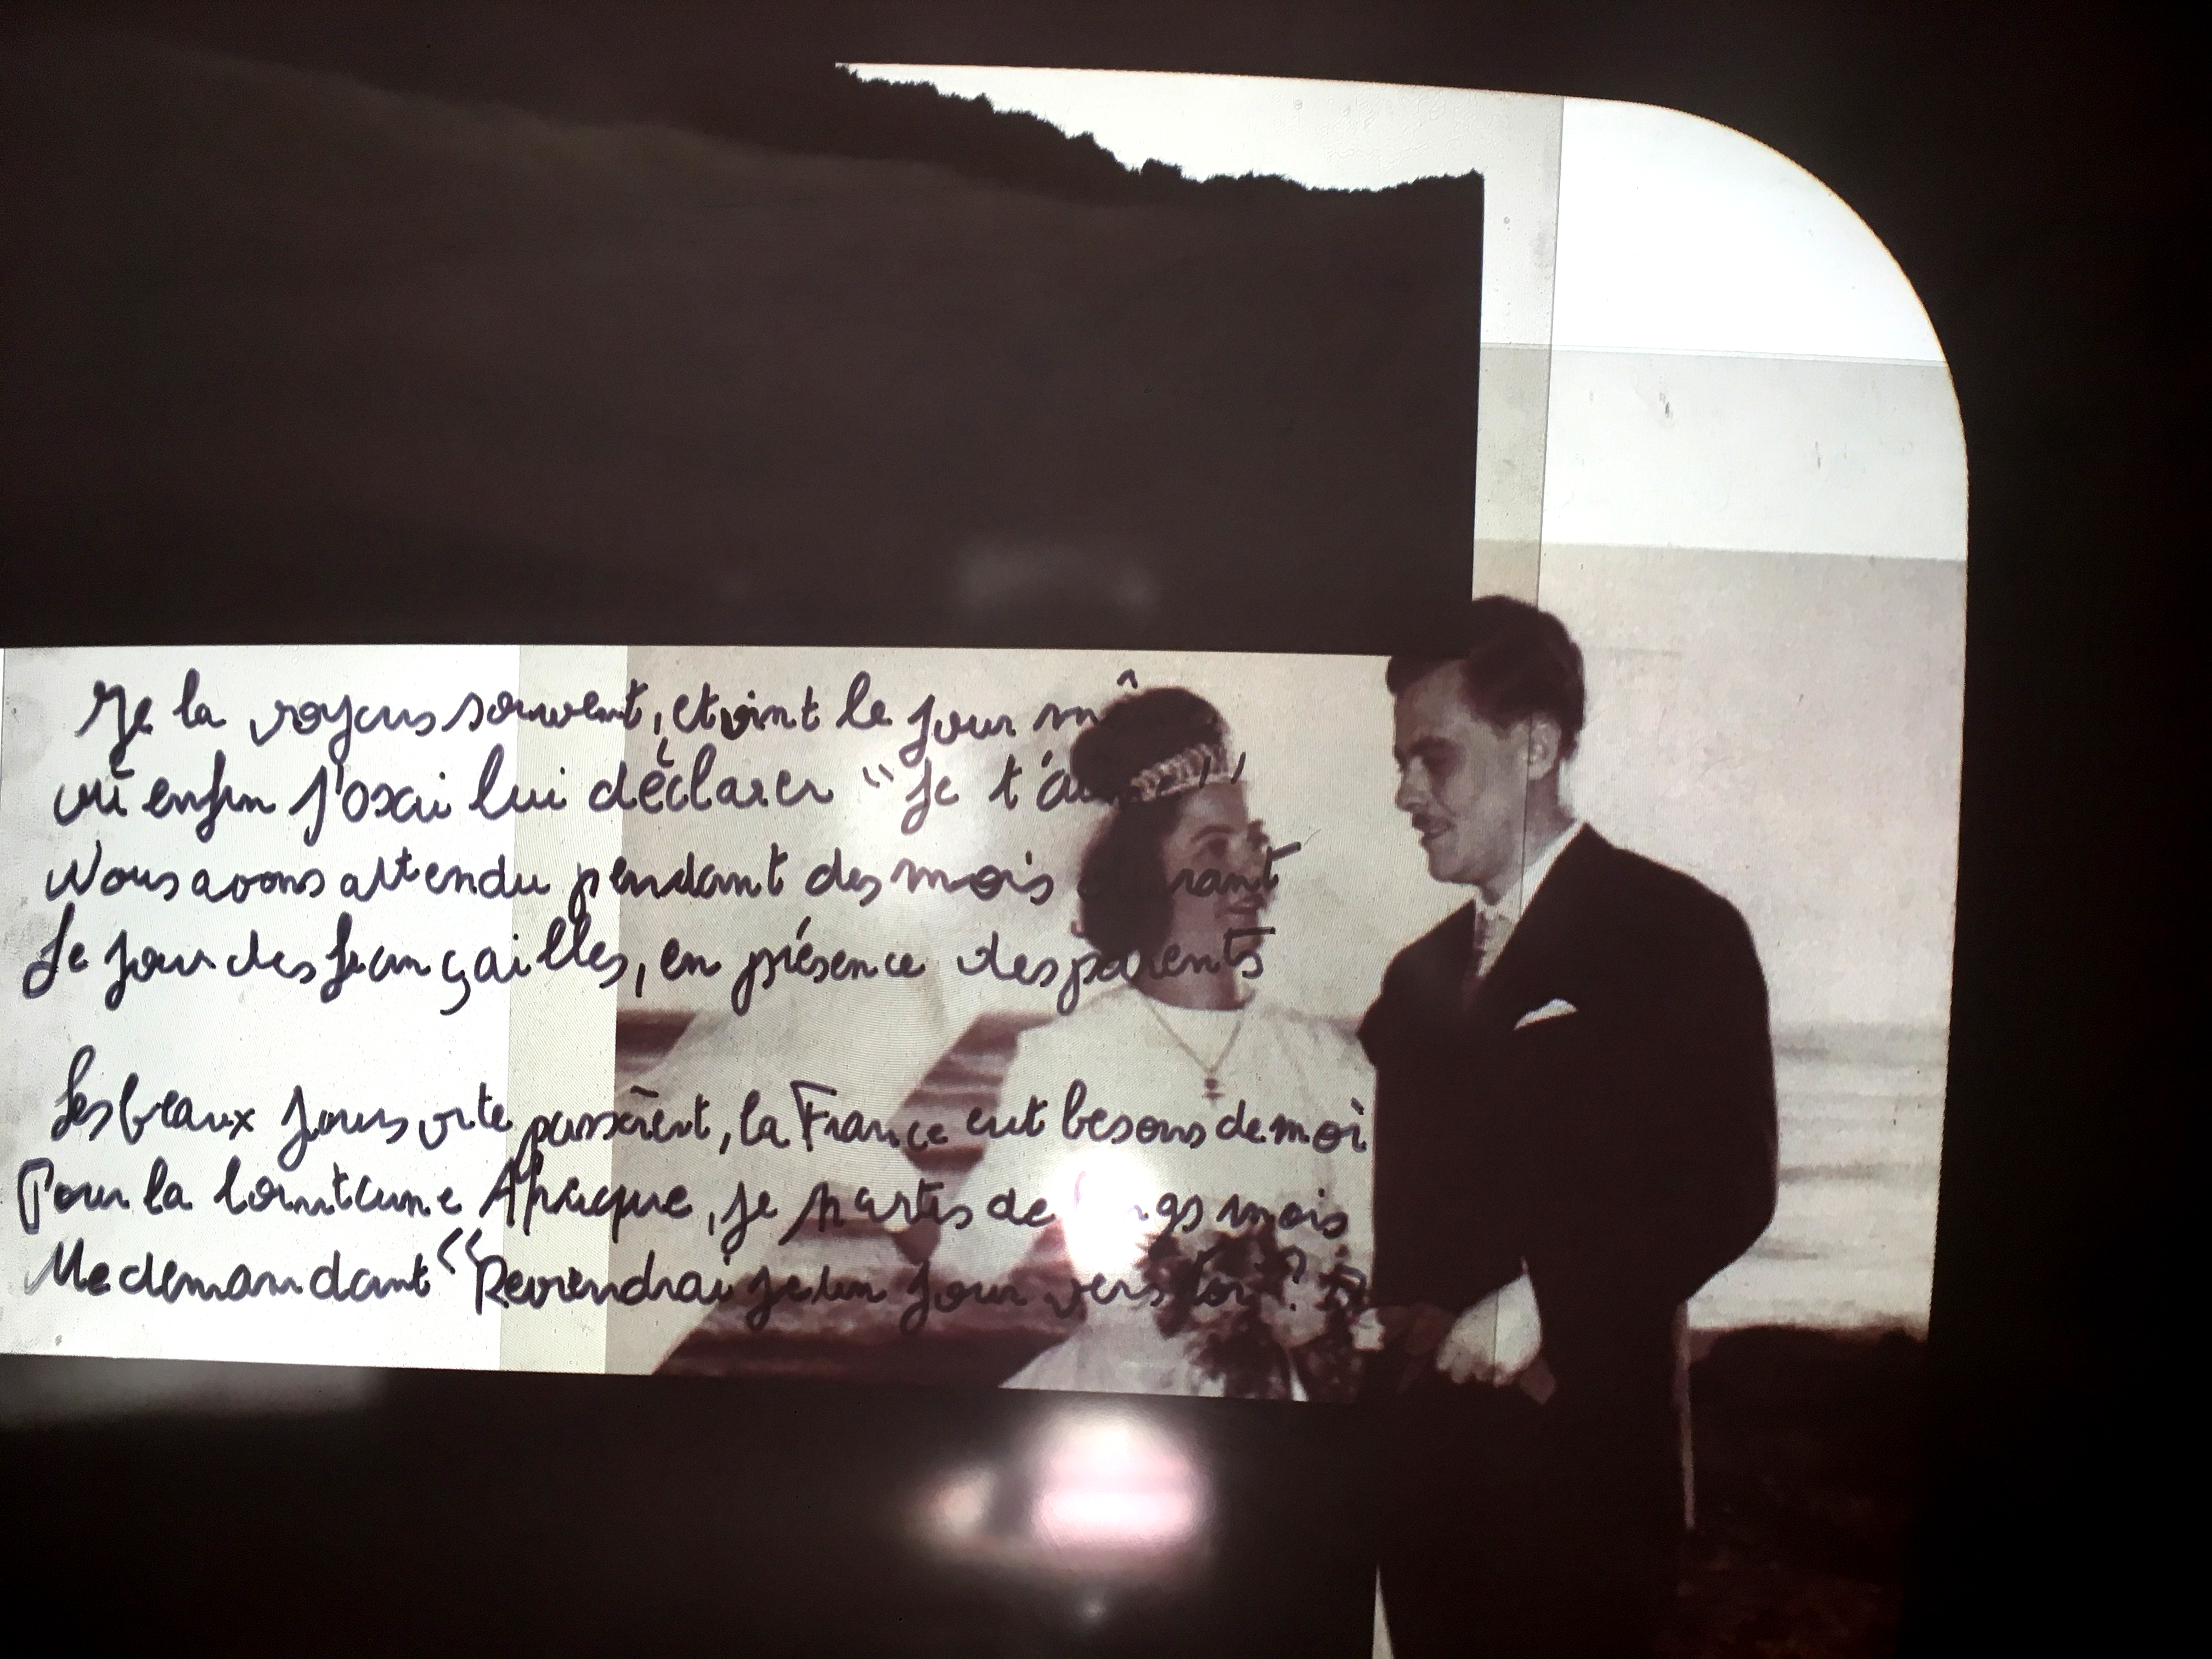 Je la voyais souvent, et vint le jour
où enfin j'osai lui déclarer "Je t'aime"
Nous avons attendu pendant des mois durant
Le jour des fiançailles, en présence des parents
Les beaux jours vite passèrent, la France eut besoins de moi
Pour la lointaine Afrique, je partis de longs mois
Me demandant "Reviendrai je un jour vers toi? "